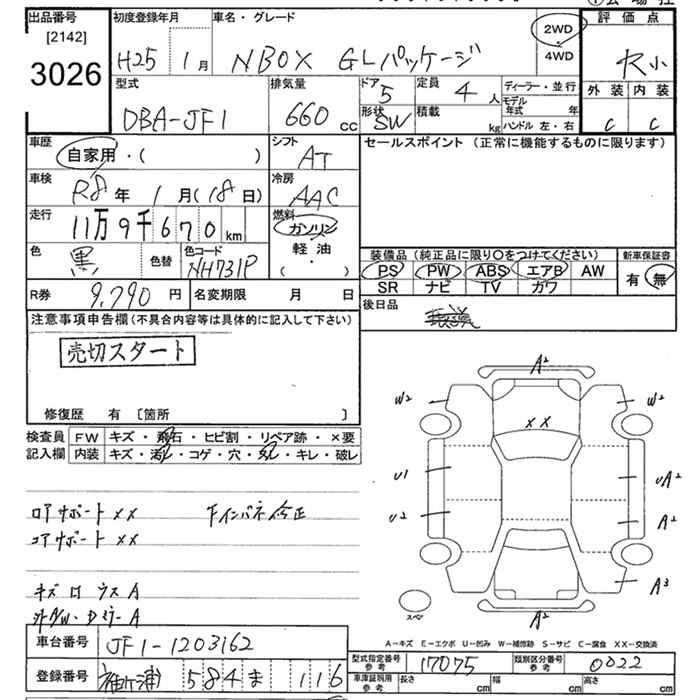 出品番号
[2142]
3026
初度登録年月
H25 1月
車名・グレード
NBOX GLパッケージ
2WD
4WD
評価点
R小
外装 内装
C C
型式
DBA-JF1
排気量
660cc
ドア
5
形状
SW
定員
4人
積載
kg
ディーラー・並行
モデル年式 年
ハンドル 左・右
車歴
自家用・( )
シフト
AT
セールスポイント(正常に機能するものに限ります)
車検
R8年 1月(18日)
冷房
AAC
走行
11万9千670km
燃料
ガソリン
軽油
( )
色
黒
色替
色コード
NH731P
装備品(純正品に限り〇をつけてください)
PS PW ABS エアB AW
SR ナビ TV カワ
新車保証書
有・無
R券 9,790円
名変期限 月 日
後日品
注意事項申告欄(不具合内容等は具体的に記入して下さい)
売切スタート
修復歴 有 [箇所 ]
検査員記入欄
FW キズ・飛石・ヒビ割・リペア跡・×要
内装 キズ・汚れ・コゲ・穴・スレ・キレ・破レ
ロアサポート XX
コアサポート XX
キズ ロ ウス A
A²
W2 XX W2
U1 UA²
U2 A²
A³
A²
スペア
A−キズ E−エクボ U−凹み W−補修跡 S−サビ C−腐食 XX−交換済
車台番号 JF1-1203162
登録番号 袖ヶ浦 584 ま 116
型式指定番号 参考 17075
類別区分番号 参考 0022
車庫証明用 参考 長さ cm 幅 cm 高さ cm